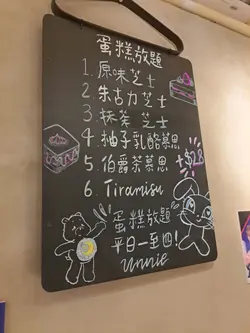 蛋糕放題
1. 原味芝士
2. 朱古力芝士
3. 抹茶芝士
4. 柚子乳酪慕思
5. 伯爵茶慕思 +$28
6. Tiramisu
蛋糕放題
平日一至四!
unnie